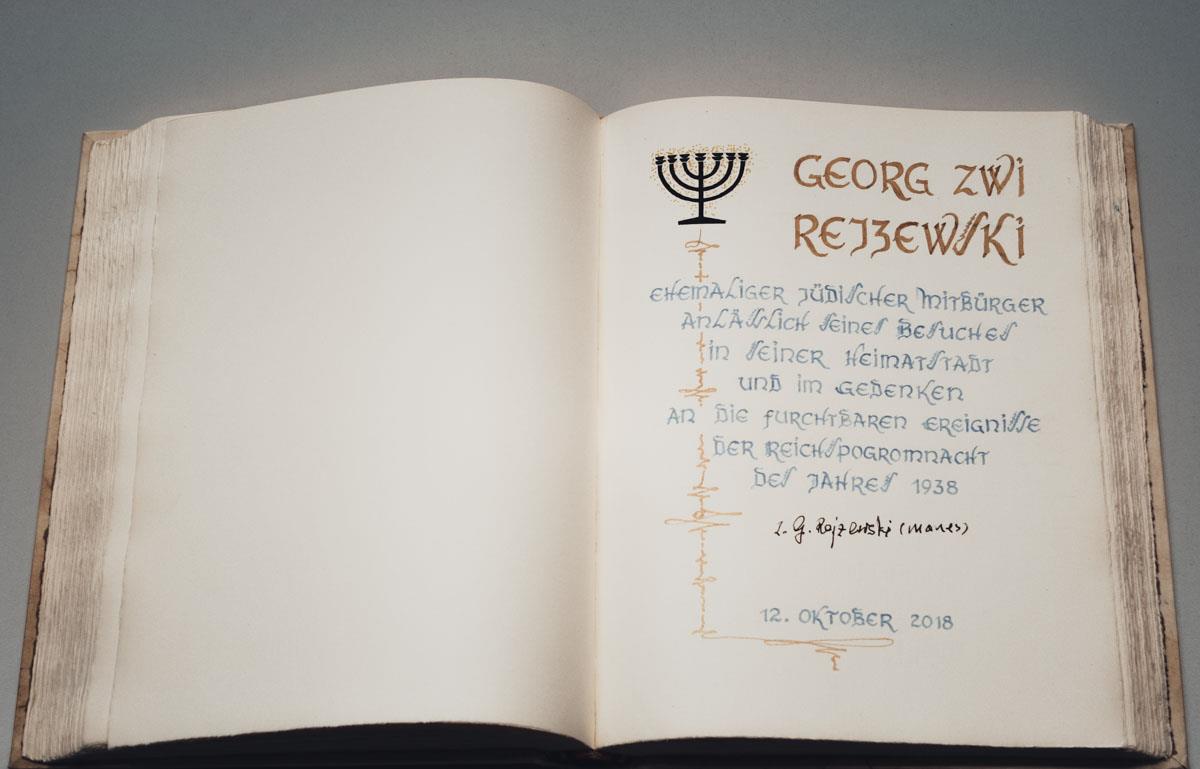 GEORG ZWI
REJZEWSKI
EHEMALIGER JÜDISCHER MITBÜRGER
ANLÄSSLICH SEINES BESUCHES
IN SEINER HEIMATSTADT
UND IM GEDENKEN
AN DIE FURCHTBAREN EREIGNISSE
DER REICHSPOGROMNACHT
DES JAHRES 1938
Z. G. Rejzewski (Manes)
12. OKTOBER 2018